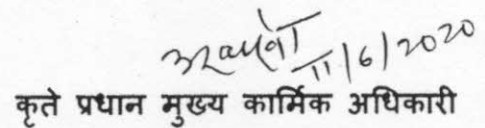 11/6/2020
कृते प्रधान मुख्य कार्मिक अधिकारी